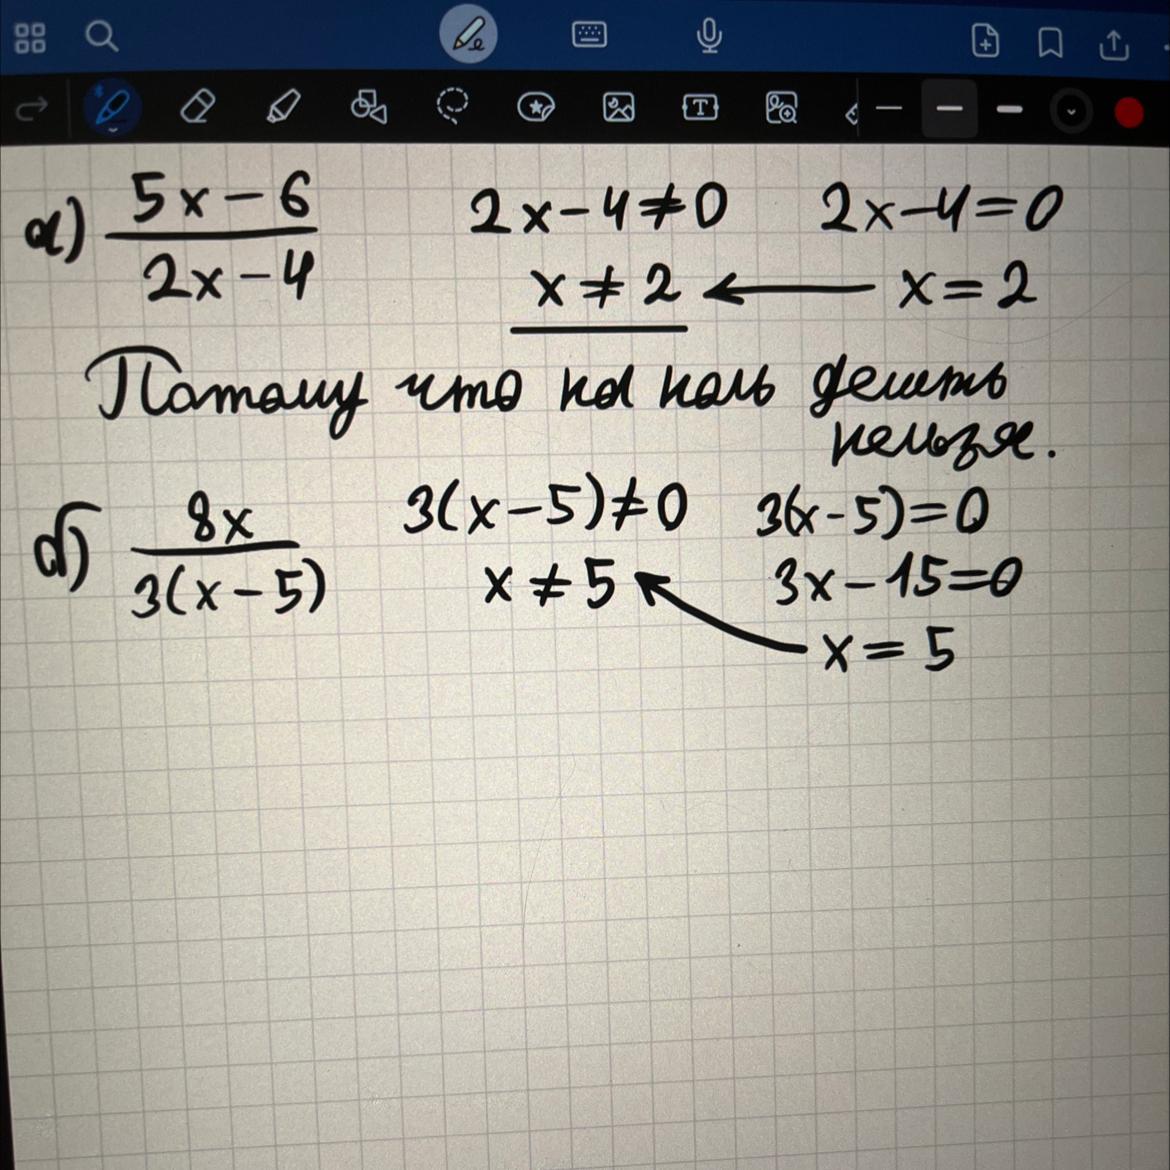 а) 5x-6 / 2x-4   2x-4≠0   2x-4=0
x≠2 ← x=2
Потому что на ноль делить
нельзя.
б) 8x / 3(x-5)   3(x-5)≠0   3(x-5)=0
x≠5   3x-15=0
x=5